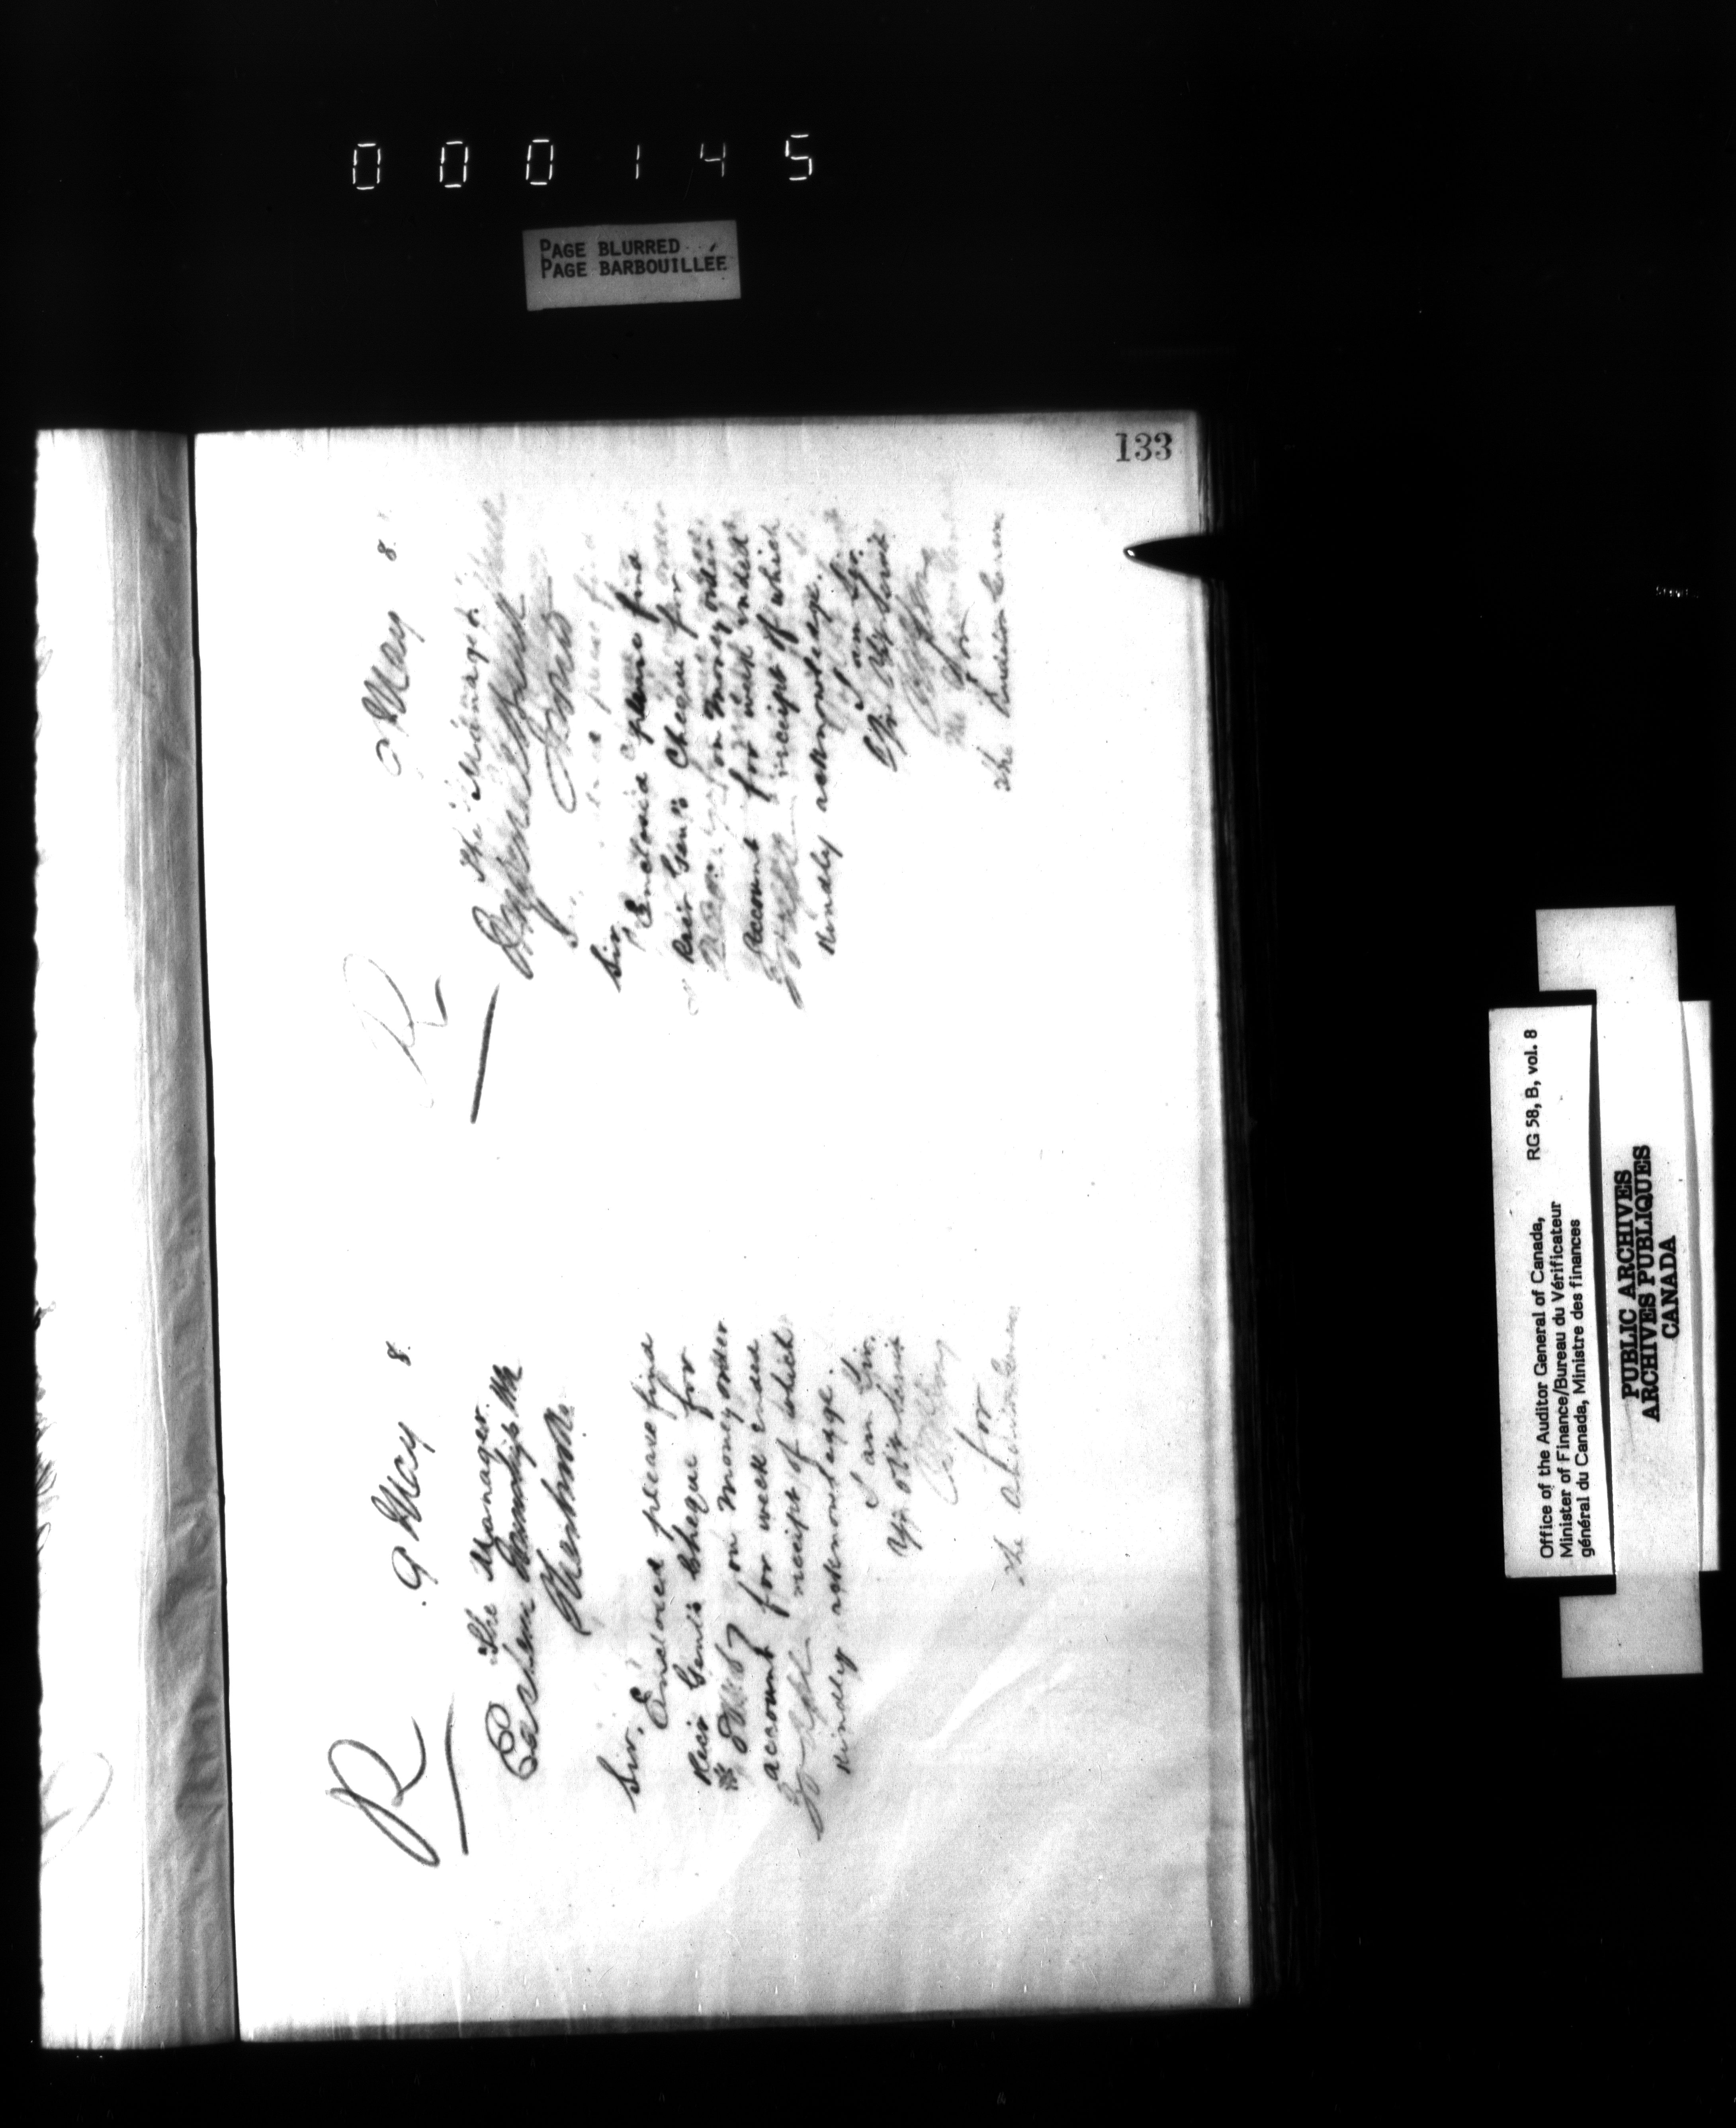 000145
PAGE BLURRED
PAGE BARBOUILLÉE
133
R
9 May 8
The Manager.
Eastern Townships Bk
Sherbrooke
Sir,
Enclosed please find
Recr Genl's Cheque for
on Money order
account for week ended
receipt of which
kindly acknowledge.
I am Sir.
Yr. obt. Servt
for
The Auditor General
R
May 8
The Manager
Sir,
Enclosed please find
Recr Genl's Cheque for
on Money order
Account for week ended
receipt of which
kindly acknowledge.
I am Sir.
Yr. obt. Servt
for
The Auditor General
Office of the Auditor General of Canada, RG 58, B, vol. 8
Minister of Finance/Bureau du Vérificateur
général du Canada, Ministre des finances
PUBLIC ARCHIVES
ARCHIVES PUBLIQUES
CANADA